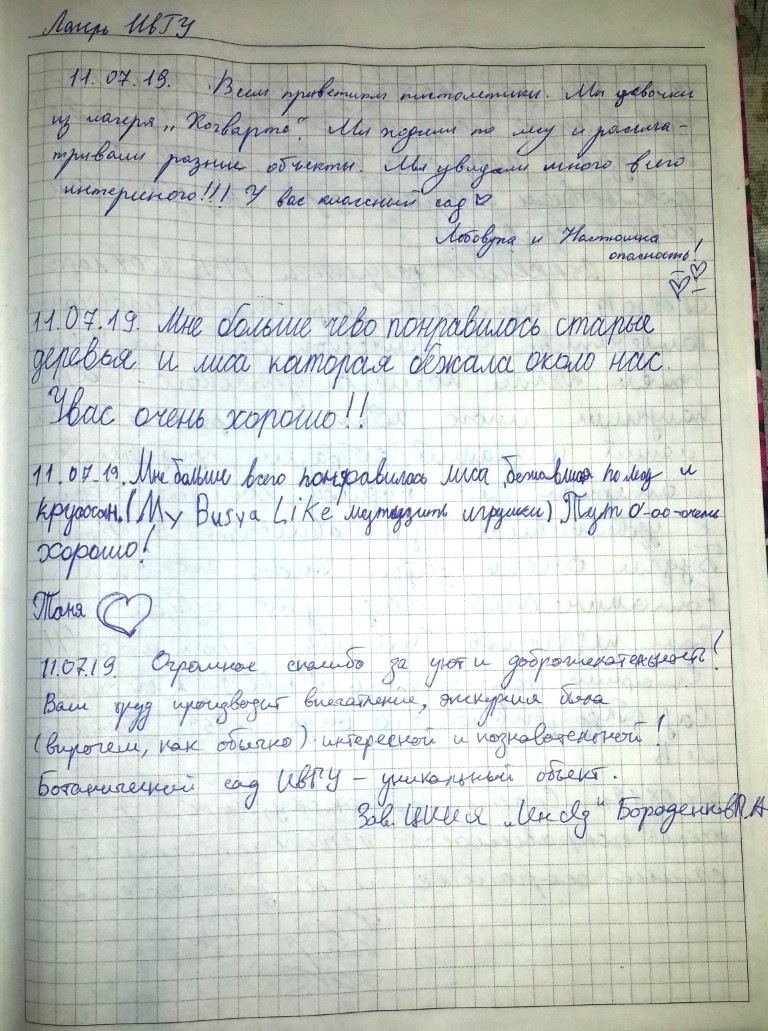 Лагерь ИвГУ
11.07.19. Всем приветики пистолетики. Мы девочки
из лагеря „Хогвартс". Мы ходили по лесу и рассма-
тривали разные объекты. Мы увидели много всего
интересного!!! У вас классный сад
и Настюшка
опасность!
11.07.19. Мне больше чево понравилось старые
деревья и лиса каторая бежала около нас.
Увас очень хорошо!!
11.07.19. Мне больше всего понравилась лиса, бежавшая по лесу и
круассан. (My Busya Like игрушки) Тут о-оо-очень
хорошо!
Таня
11.07.19. Огромное спасибо за уют и доброжелательность!
Ваш труд производит впечатление, экскурсия была
(впрочем, как обычно) интересной и познавательной!
Ботанический сад ИвГУ – уникальный объект.
Зав. „ИнЯз"